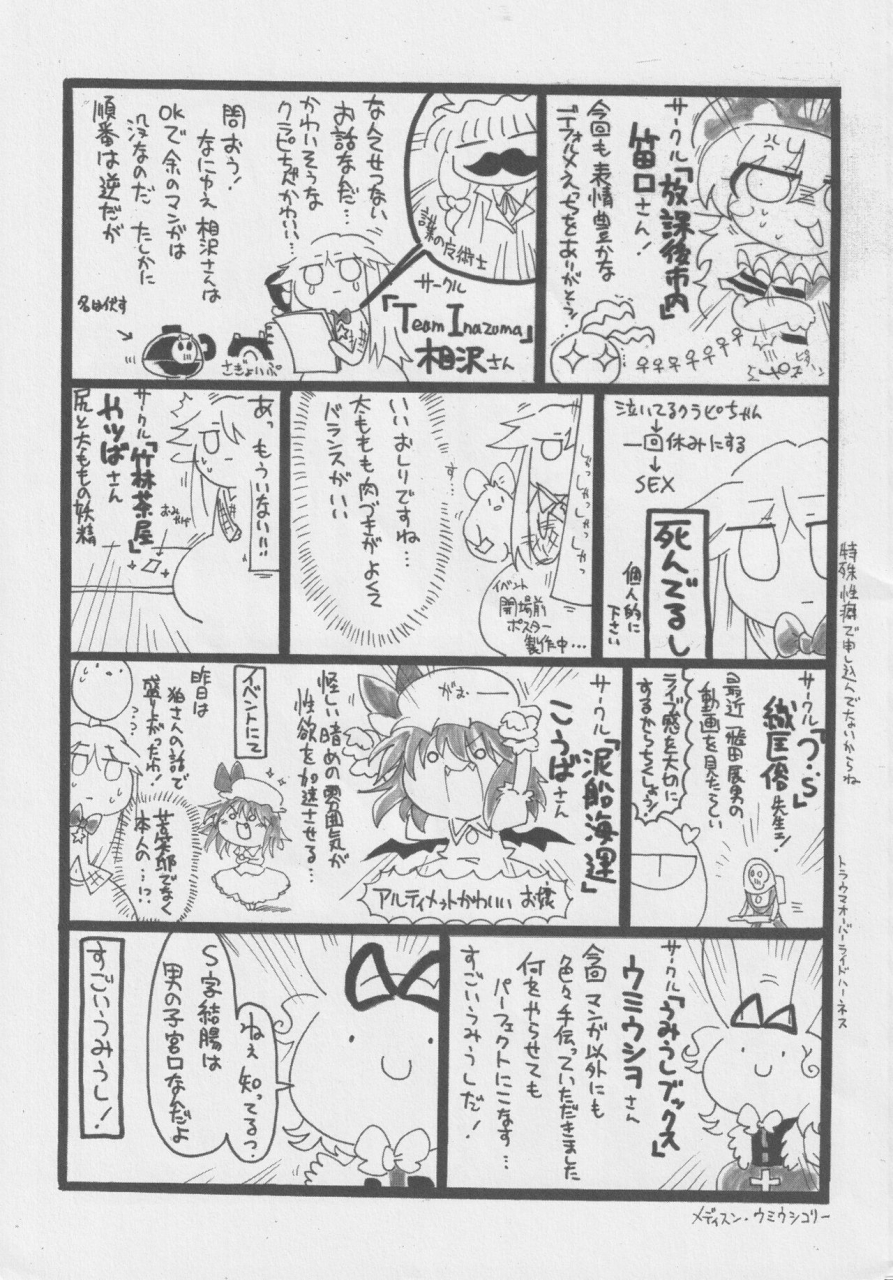 サークル「放課後市内」
笛口さん!
今回も表情豊かな
デフォルメえっちをありがとう!
なんてせつない
お話なんだ…
かわいそうな
クラピちゃんかわいい…
謀の女術士
サークル
「Team Inazuma」
相沢さん
問おう!
なにゆえ相沢さんは
OKで余のマンガは
没なのだ たしかに
順番は逆だが
名は伏す
泣いてるクラピちゃん
↓
一回休みにする
↓
SEX
死んでるし
個人的に
下さい
特殊性癖で申し込んでないからね
しゃっしゃっしゃっしゃっ
す…
イベント
開場前
ポスター
製作中…
いいおしりですね…
太ももも肉づきがよくて
バランスがいい
あっ もういない!!
おみやげ
サークル「竹林茶屋」
ヤツばさん
尻と太ももの妖精
サークル「つ・ら」
織匡俗先生!
最近 飯田展男の
動画を見たらしい
ライブ感を大切に
するからちくしょう!
サークル「泥船海運」
こうばさん
がおーー
アルティメットかわいい お嬢
怪しい暗めの雰囲気が
性欲を加速させる…
イベントにて
昨日は
狛さんの話で
盛り上がったわ!
苦笑邸でなく
本人の…!?
トラウマオーバーライドハーネス
サークル「うみうしブックス」
ウミウシヲさん
今回マンガ以外にも
色々手伝っていただきました
何をやらせても
パーフェクトにこなす…
すごいうみうしだ!
ねぇ 知ってる?
S字結腸は
男の子宮口なんだよ
すごいうみうし!
メディスン・ウミウシコリー